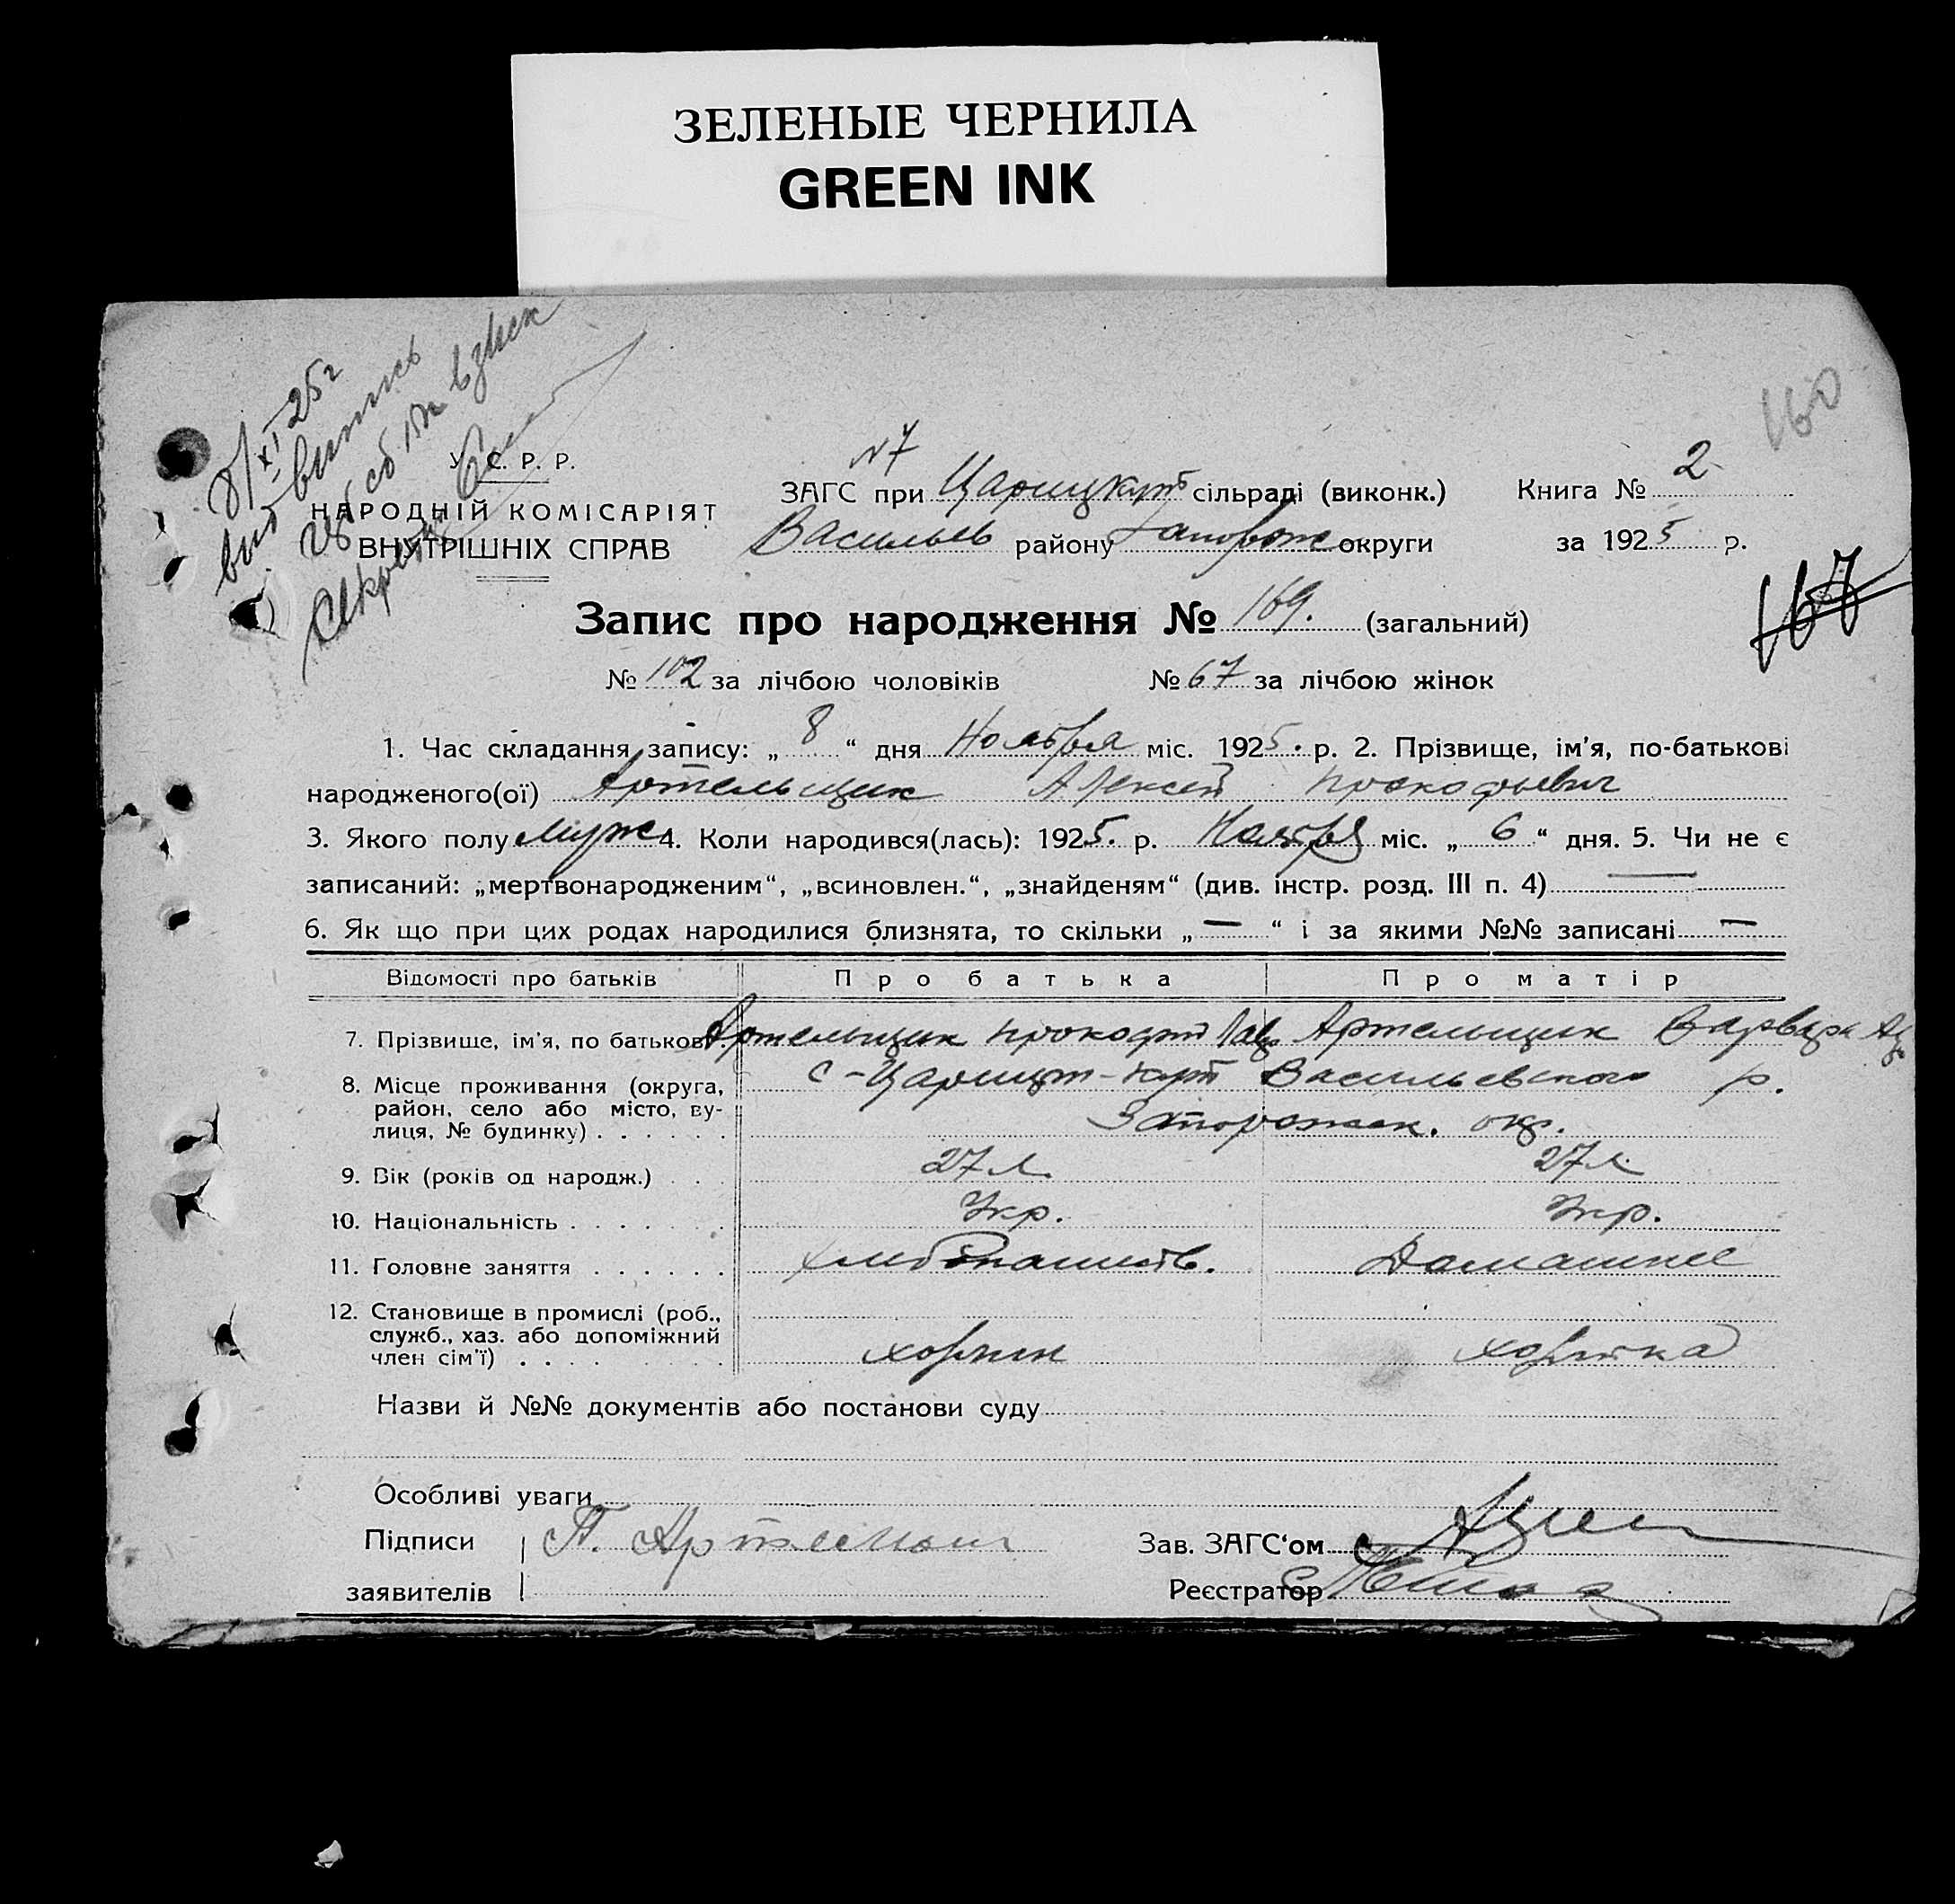 ЗЕЛЕНЫЕ ЧЕРНИЛА
GREEN INK
160
8/XI-25 г
вид выпись
Секрет
У. С. Р. Р.
НАРОДНІЙ КОМІСАРІЯТ
ВНУТРІШНІХ СПРАВ
№7
ЗАГС при Царицкут сільраді (виконк.) Книга № 2
Васильев району Запорож округи за 1925 р.
167
Запис про народження № 169. (загальний)
№ 102 за лічбою чоловіків № 67 за лічбою жінок
1. Час складання запису: „ 8 “ дня Ноября міс. 1925. р. 2. Прізвище, ім’я, по-батькові
народженого(ої) Артельщик Алексей Прокофьевич
3. Якого полу Муж 4. Коли народився(лась): 1925. р. Ноября міс. „ 6 “ дня. 5. Чи не є
записаний: „мертвонародженим“, „всиновлен.“, „знайденям“ (див. інстр. розд. III п. 4) —
6. Як що при цих родах народилися близнята, то скільки „ — “ і за якими №№ записані —
Відомості про батьків Про батька Про матір
7. Прізвище, ім’я, по батькові. Артельщик Прокофий Артельщик Варвара
8. Місце проживання (округа, с-Царицын-Кут Васильевского р.
район, село або місто, ву-
лиця, № будинку) . . . . . . Запорожск. окр.
9. Вік (років од народж.) . . . 27 л. 27 л.
10. Національність . . . . . . . Укр. Укр.
11. Головне заняття . . . . . . Хлебопашеств. Домашнее
12. Становище в промислі (роб.,
служб., хаз. або допоміжний
член сім’ї) . . . . . . . хозяин хозяйка
Назви й №№ документів або постанови суду
Особливі уваги
Підписи П. Зав. ЗАГС‘ом
заявителів Реєстратор